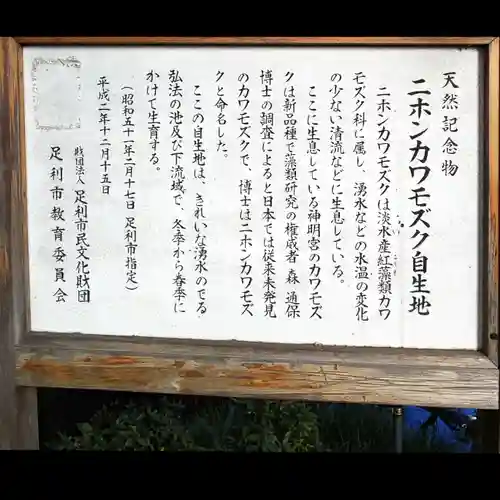 天然記念物
ニホンカワモズク自生地
ニホンカワモズクは淡水産紅藻類カワ
モズク科に属し、湧水などの水温の変化
の少ない清流などに生息している。
ここに生息している神明宮のカワモズ
クは新品種で藻類研究の権威者 森 通保
博士の調査によると日本では従来未発見
のカワモズクで、博士はニホンカワモズ
クと命名した。
ここの自生地は、きれいな湧水のでる
弘法の池及び下流域で、冬季から春季に
かけて生育する。
(昭和五十一年二月十七日 足利市指定)
平成二年十二月十五日
財団法人 足利市民文化財団
足利市教育委員会